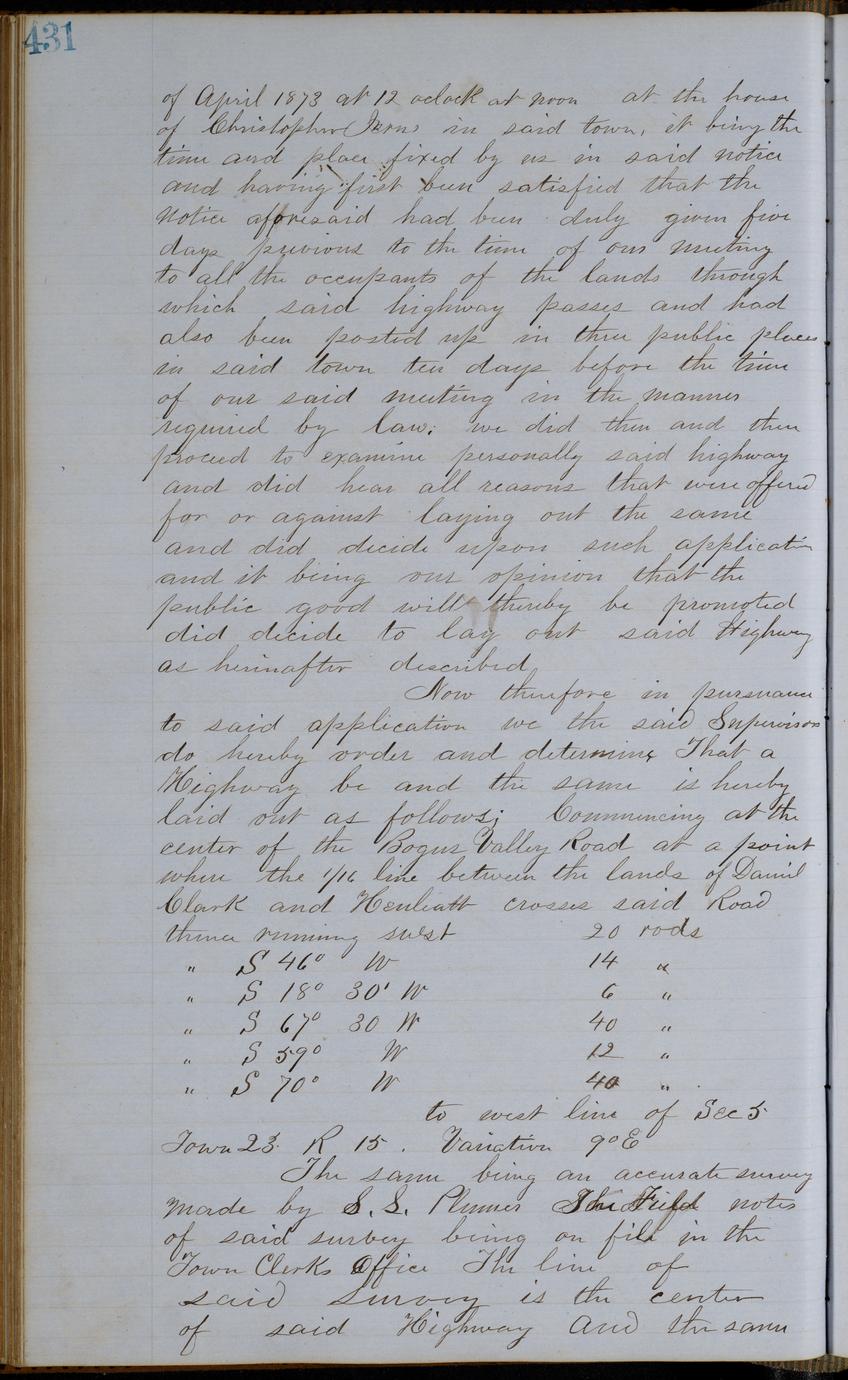 431
of April 1873 at 12 oclock at noon at the house
of Christopher in said town, it being the
time and place fixed by us in said notice
and having first been satisfied that the
notice aforesaid had been duly given five
days previous to the time of our meeting
to all the occupants of the lands through
which said highway passes and had
also been posted up in three public places
in said town ten days before the time
of our said meeting in the manner
required by law: we did then and there
proceed to examine personally said highway
and did hear all reasons that were offered
for or against laying out the same
and did decide upon such application
and it being our opinion that the
public good will thereby be promoted
did decide to lay out said Highway
as herinafter described
Now therefore in pursuance
to said application we the said Supervisors
do hereby order and determine That a
Highway be and the same is hereby
laid out as follows; Commencing at the
center of the Bogus Valley Road at a point
where the 1/16 line between the lands of Daniel
Clark and crosses said Road
thence running 20 rods
" S 46° W 14 "
" S 18° 30' W 6 "
" S 67° 30 W 40 "
" S 59° W 12 "
" S 70° W 40 "
to west line of Sec 5
Town 23 R 15. Variation 9° E
The same being an accurate survey
made by S. S. Plumer The Field notes
of said survey being on file in the
Town Clerks Office The line of
said Survey is the center
of said Highway and the same